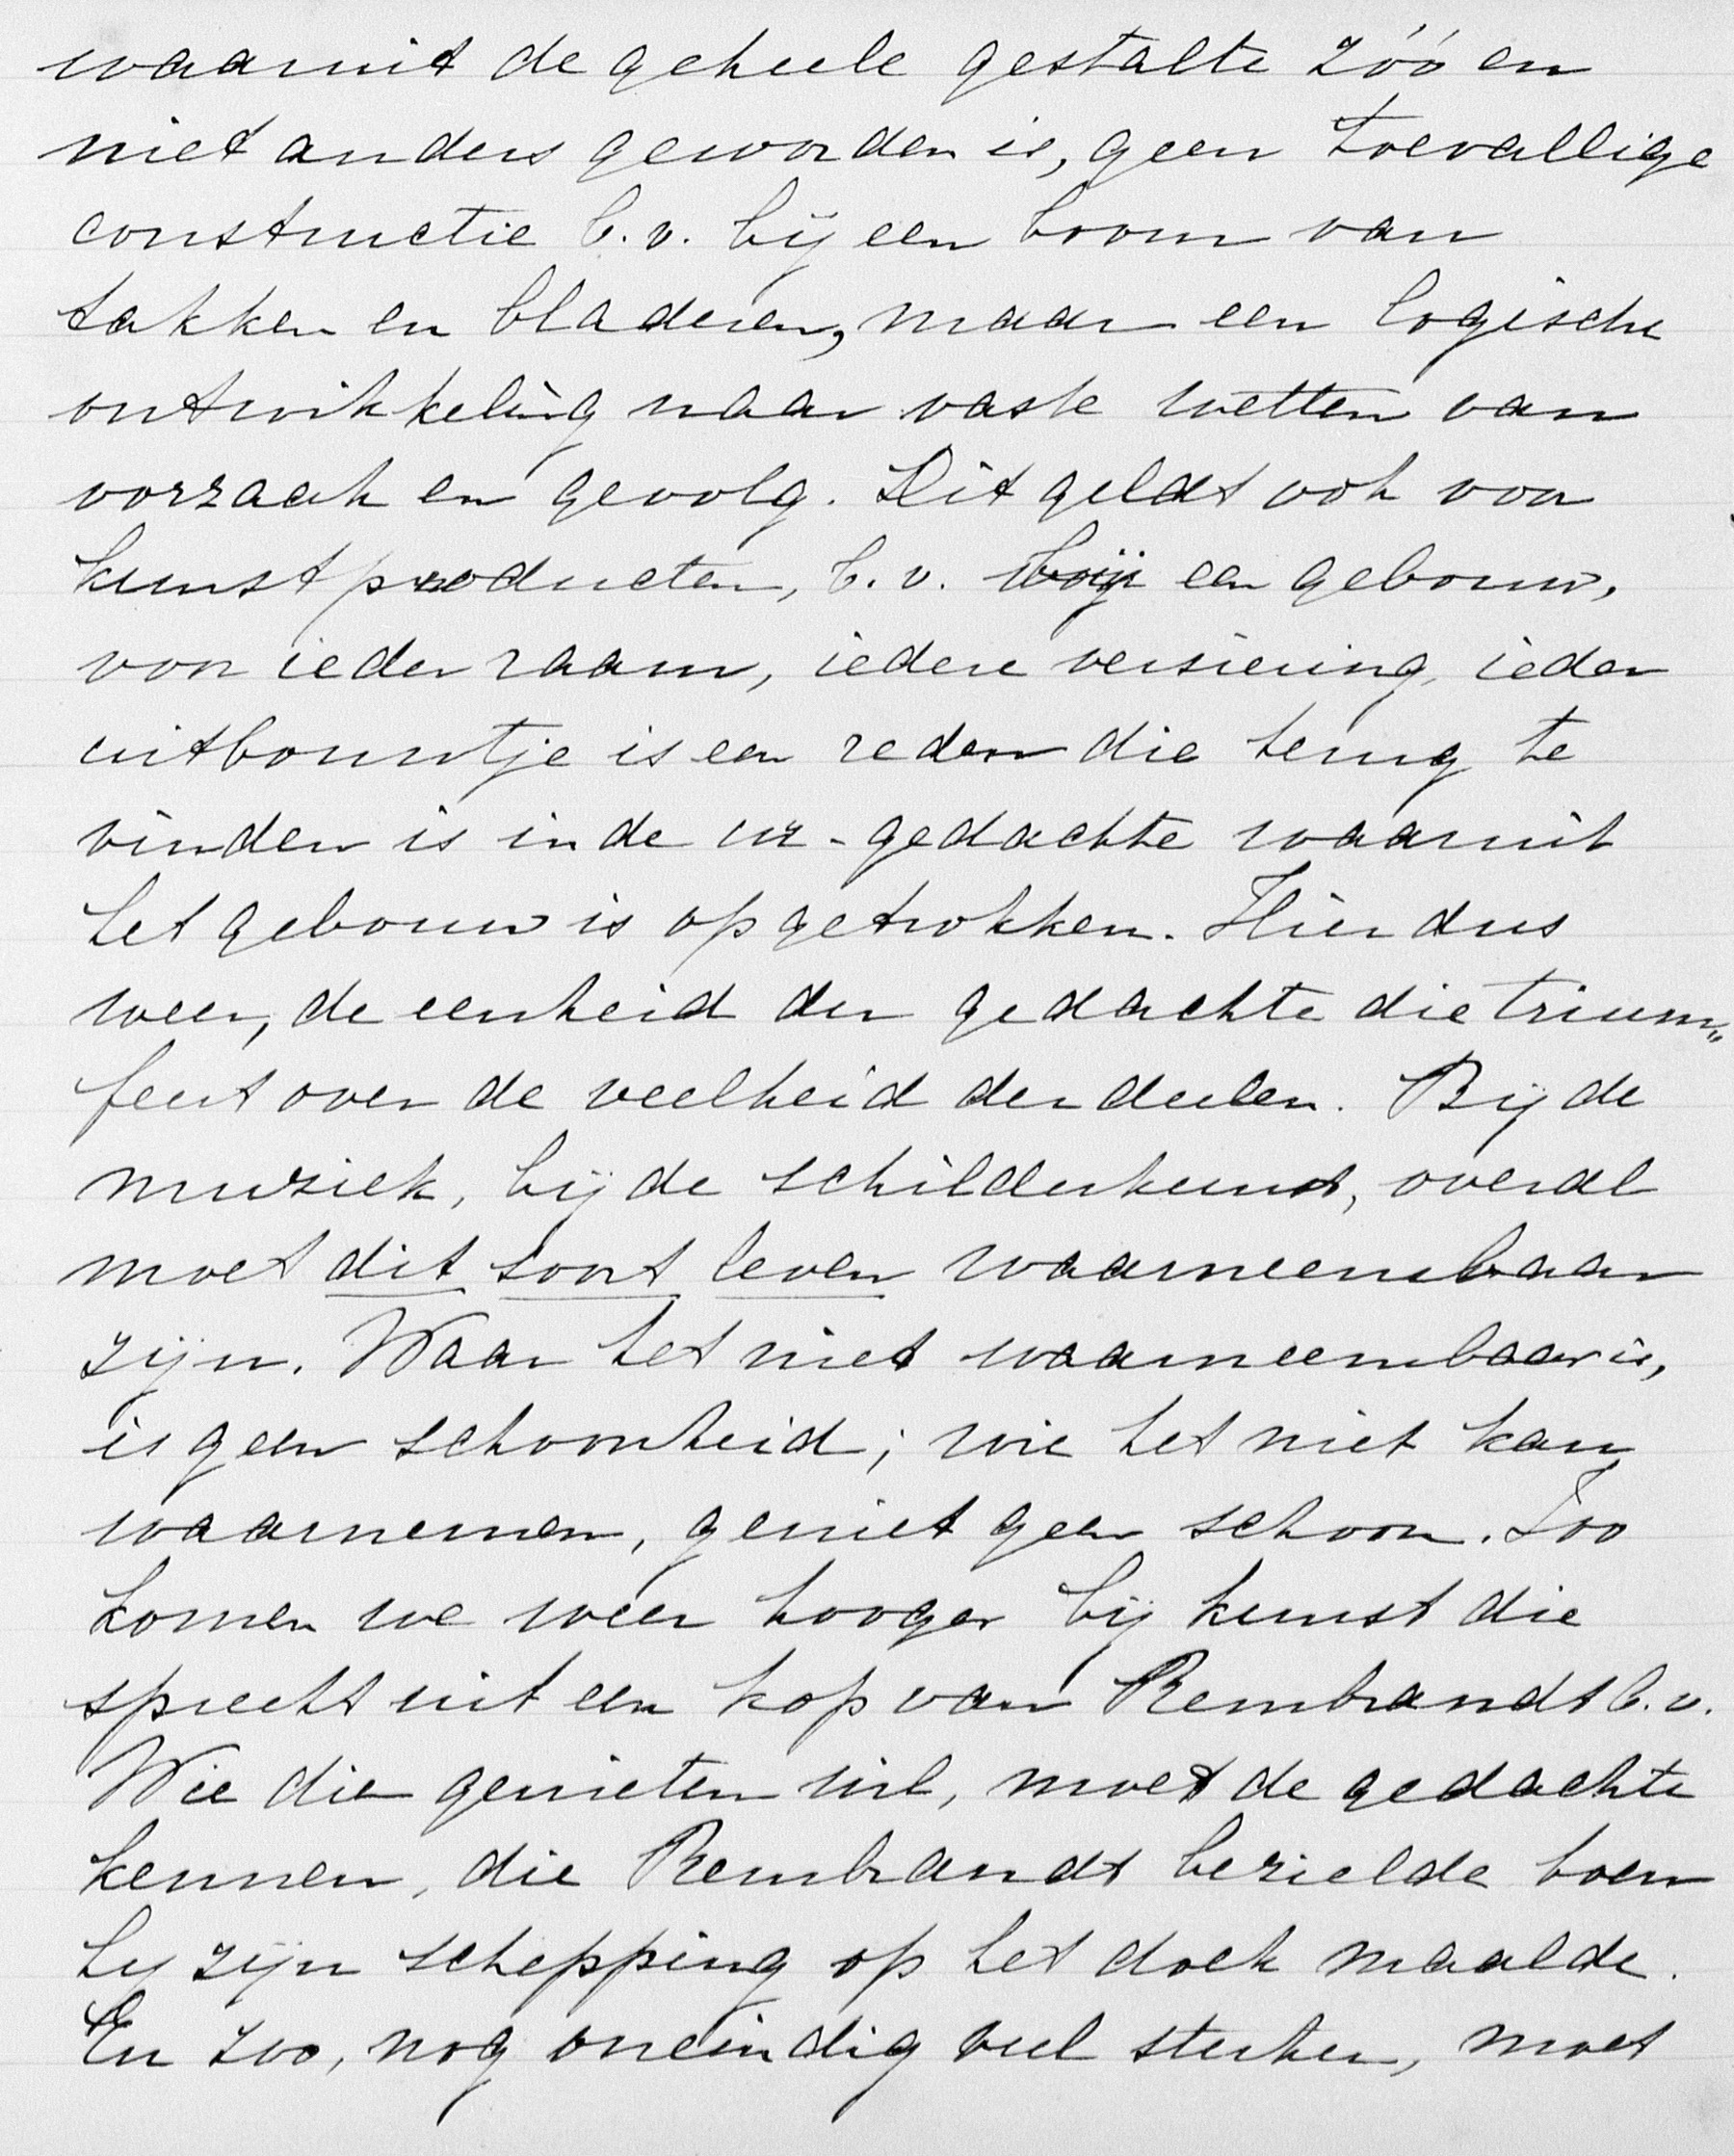 waaruit de geheele gestalte zóó en
niet anders geworden is, geen toevallige
constructie b.v. bij een boom van
takken en bladeren, maar een logische
ontwikkeling naar vaste wetten van
oorzaak en gevolg. Dit geldt ook voor
kunstproducten, b.v. een gebouw,
voor ieder raam, iedere versiering, ieder
uitbouwtje is een reden die terug te
vinden is in de ur-gedachte waaruit
het gebouw is opgetrokken. Hier dus
weer, de eenheid der gedachte die trium„
feert over de veelheid der deelen. Bij de
muziek, bij de schilderkunst, overal
moet dit soort leven waarneembaar
zijn. Waar het niet waarneembaar is,
is geen schoonheid; wie het niet kan
waarnemen, geniet geen schoon. Zoo
komen we weer hooger bij kunst die
spreekt uit een kop van Rembrandt b.v.
Wie die genieten wil, moet de gedachte
kennen, die Rembrandt bezielde toen
hij zijn schepping op het doek maalde.
En zoo, nog oneindig veel sterker, moet